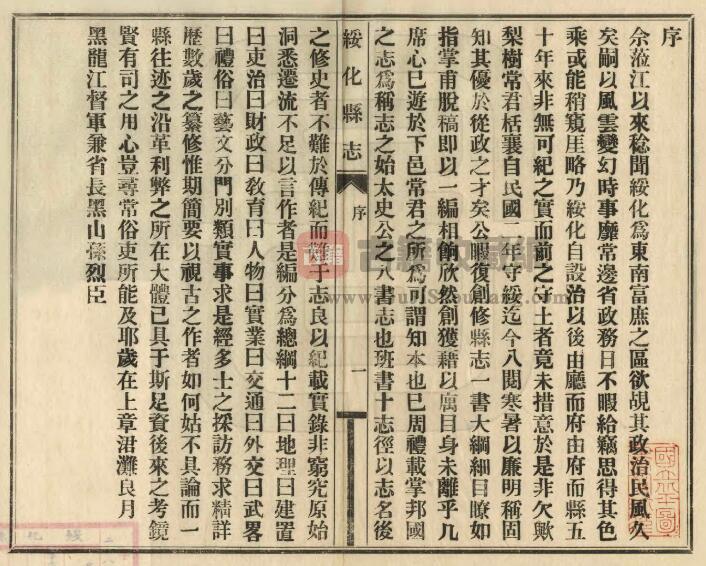 序
余蒞江以來稔聞綏化爲東南富庶之區欲覘其政治民風久
矣嗣以風雲變幻時事靡常邊省政務日不暇給竊思得其色
乘或能稍窺厓略乃綏化自設治以後由廳而府由府而縣五
十年來非無可紀之實而前之守土者竟未措意於是非欠歟
梨樹常君栝襄自民國二年守綏迄今八閱寒暑以廉明稱固
知其優於從政之才矣公暇復創修縣志一書大綱細目瞭如
指掌甫脫稿即以一編相餉欣然創獲藉以寓目身未離乎几
席心已遊於下邑常君之所爲可謂知本也已周禮載掌邦國
之志爲稱志之始太史公之八書志也班書十志徑以志名後
綏化縣志
序
一
之修史者不難於傳紀而難于志良以紀載實錄非窮究原始
洞悉遷流不足以言作者是編分爲總綱十二曰地理曰建置
曰吏治曰財政曰敎育曰人物曰實業曰交通曰外交曰武畧
曰禮俗曰藝文分門別類實事求是經多士之採訪務求精詳
歷數歲之纂修惟期簡要以視古之作者如何姑不具論而一
縣往迹之沿革利弊之所在大體已具于斯足資後來之考鏡
賢有司之用心豈尋常俗吏所能及耶歲在上章涒灘良月
黑龍江督軍兼省長黑山孫烈臣